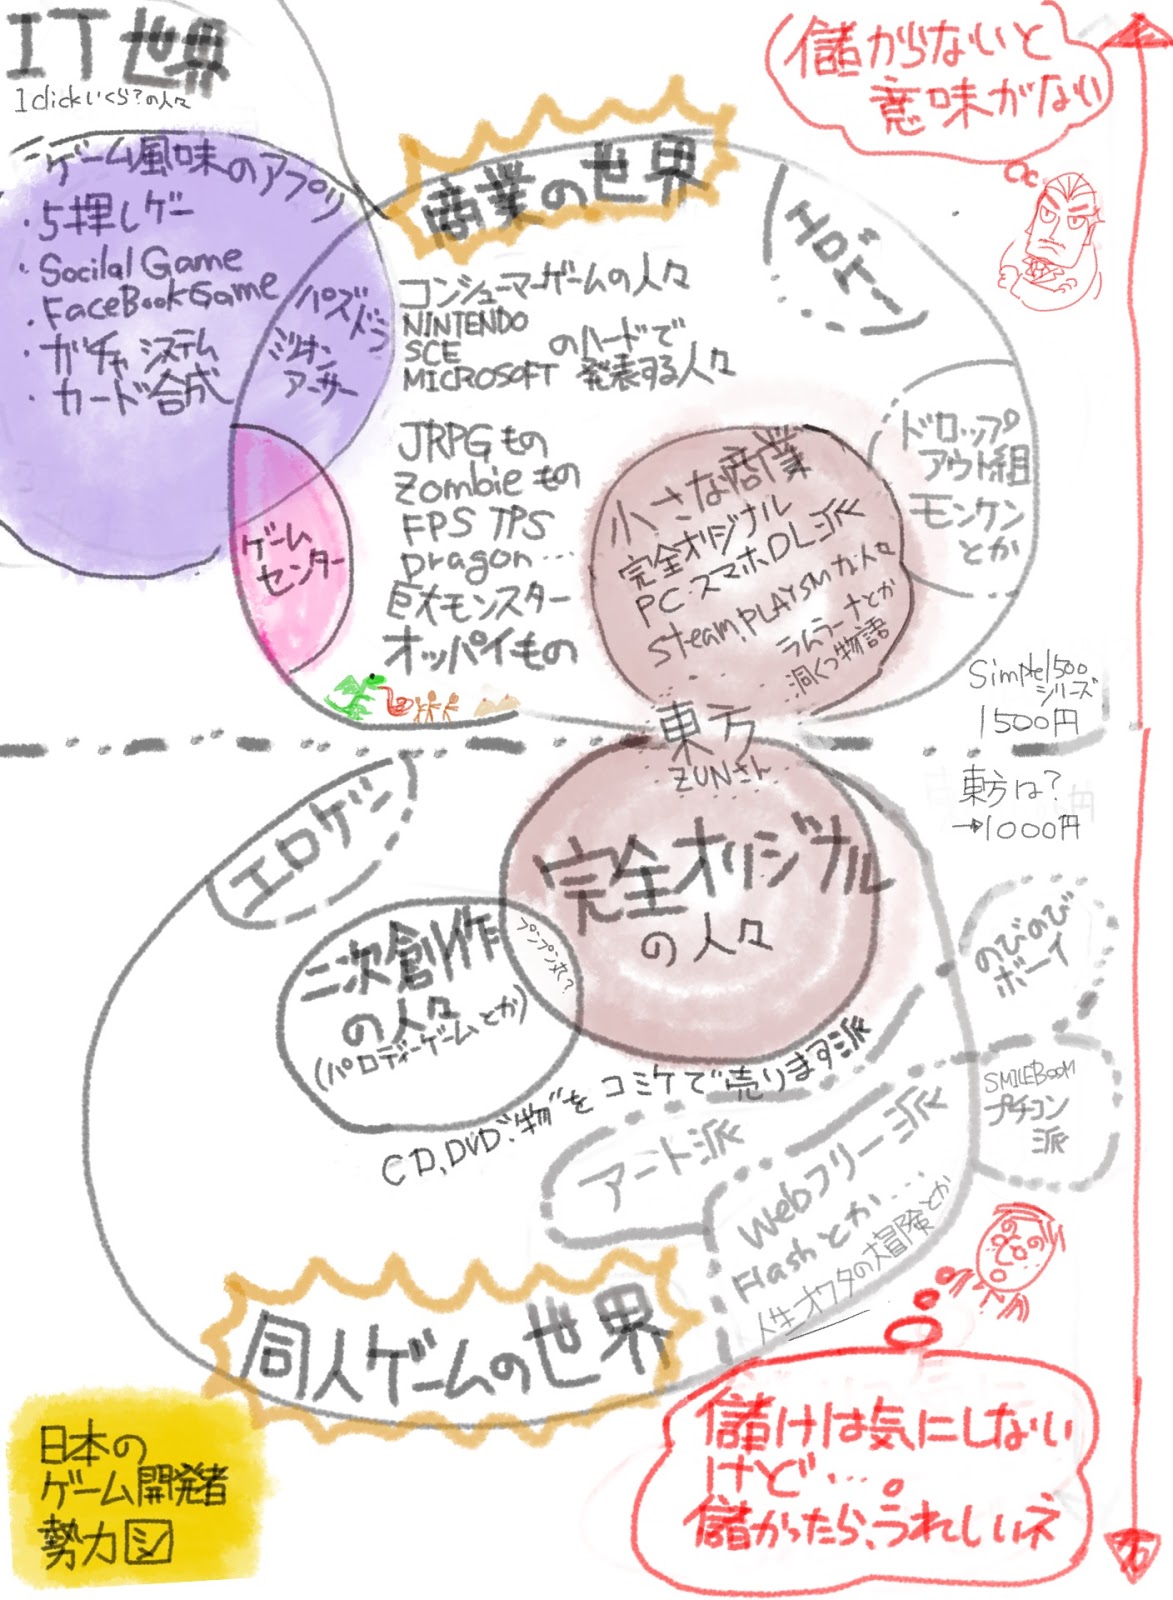 IT世界
1clickいくら?の人々
ゲーム風味のアプリ
・5押しゲー
・Socilal Game
・FaceBookGame
・ガチャシステム
・カード合成
パズドラ
ミリオン
アーサー
ゲーム
センター
商業の世界
エロゲー
コンシューマーゲームの人々
NINTENDO
SCE のハードで
MICROSOFT 発表する人々
JRPGもの
Zombieもの
FPS TPS
Dragon・・・
巨大モンスター
オッパイもの
小さな商業
完全オリジナル
PC・スマホDL派
Steam, PLAYSMな人々
ラムラーナとか
洞くつ物語
ドロップ
アウト組
モンケン
とか
儲からないと
意味がない
Simple1500
シリーズ
1500円
東方
ZUNさん
東方は?
→1000円
エロゲー
完全オリジナル
の人々
二次創作
の人々
(パロディーゲームとか)
プンプン丸?
CD,DVD"物"をコミケで売ります派
のびのび
ボーイ
SMILEBOOM
プチコン
派
アート派
Webフリー派
Flashとか・・・
人生オワタの大冒険とか
同人ゲームの世界
儲けは気にしない
けど・・・。
儲かったら、うれしいネ
日本の
ゲーム開発者
勢力図